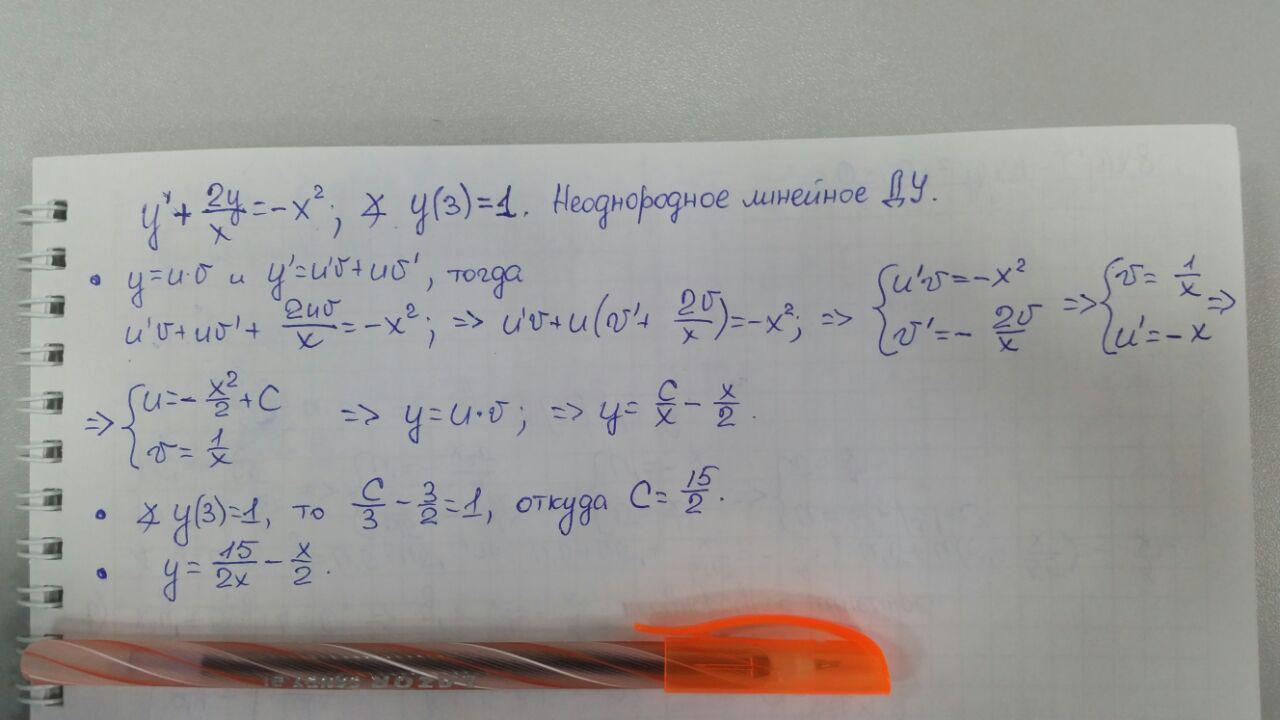 y' + 2y/x = -x²; ∡ y(3)=1. Неоднородное линейное ДУ.
• y=u·v и y'=u'v+uv', тогда
u'v+uv'+ 2uv/x = -x²; => u'v+u(v'+ 2v/x)=-x²; => { u'v=-x² { v'=- 2v/x => { v= 1/x { u'=-x =>
=> { u=- x²/2 +C { v= 1/x => y=u·v; => y= C/x - x/2.
• ∡ y(3)=1, то C/3 - 3/2 =1, откуда C= 15/2.
• y= 15/2x - x/2.